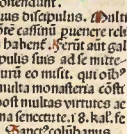 ostendunt.
uus discipulus. Multi
ōtē cassinū puenere rel
habent. Ferūt aut gal
pulis suis ad se mitte
turū eo misit. qui oīb⁹
multa monasteria cōsti
post multas virtutes ae
na senectute. 18. kal. fe
Sanct⁹ columbanus